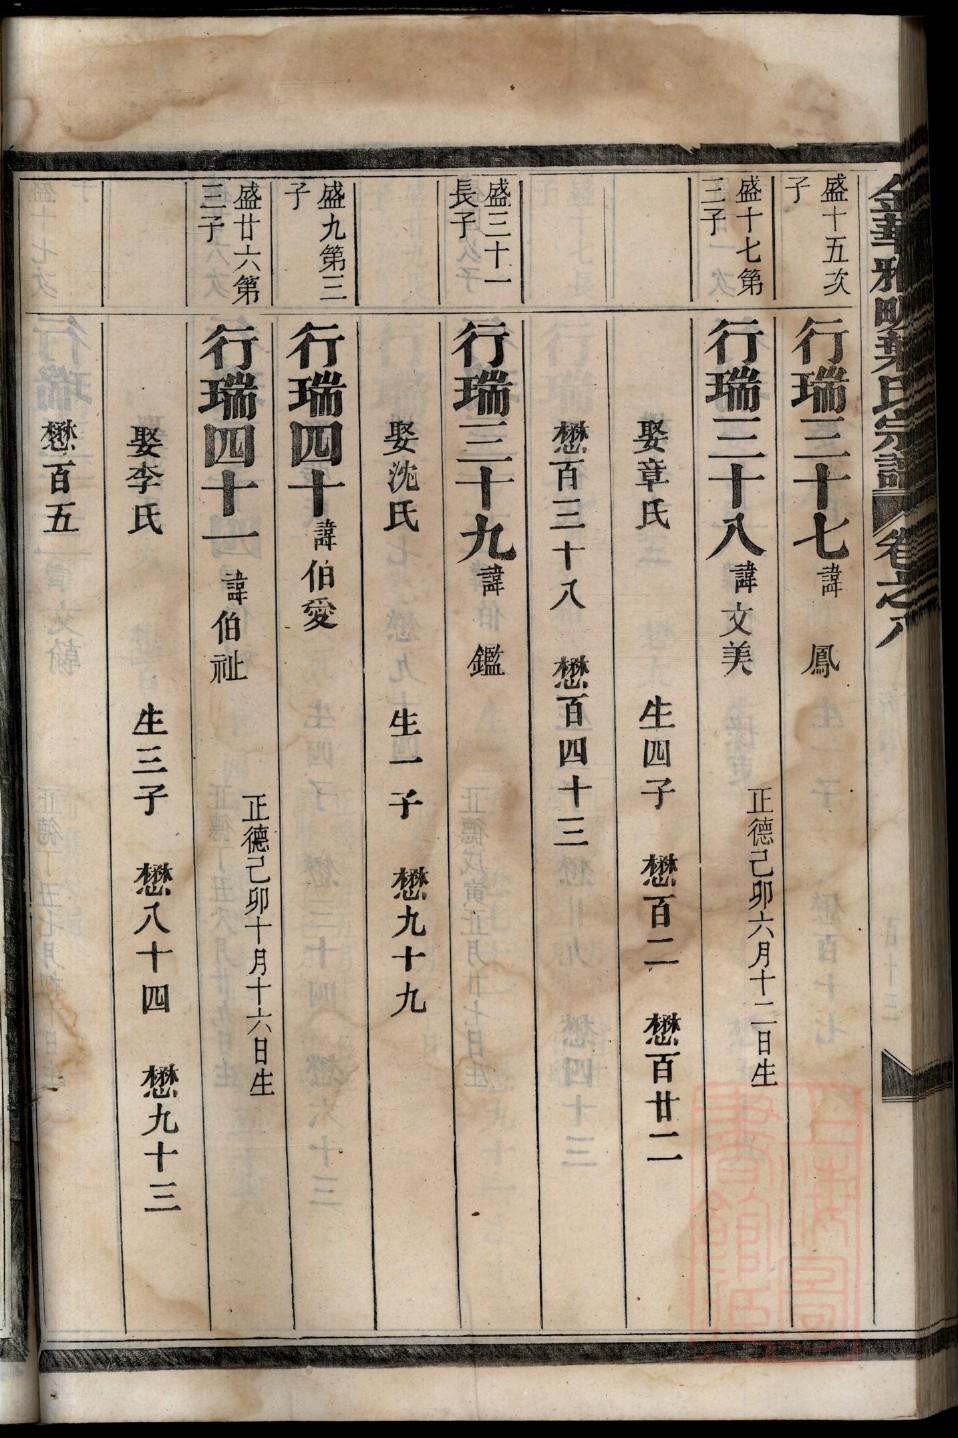 金華雅畈葉氏宗譜 卷之八
盛十五次
子
行瑞三十七 諱鳳
盛十七第
三子
行瑞三十八 諱文美 正德己卯六月十二日生
娶章氏 生四子 懋百二 懋百廿二
懋百三十八 懋百四十三
盛三十一
長子
行瑞三十九 諱伯鑑
娶沈氏 生一子 懋九十九
盛九第三
子
行瑞四十 諱伯愛
盛廿六第
三子
行瑞四十一 諱伯祉 正德己卯十月十六日生
娶李氏 生三子 懋八十四 懋九十三
懋百五